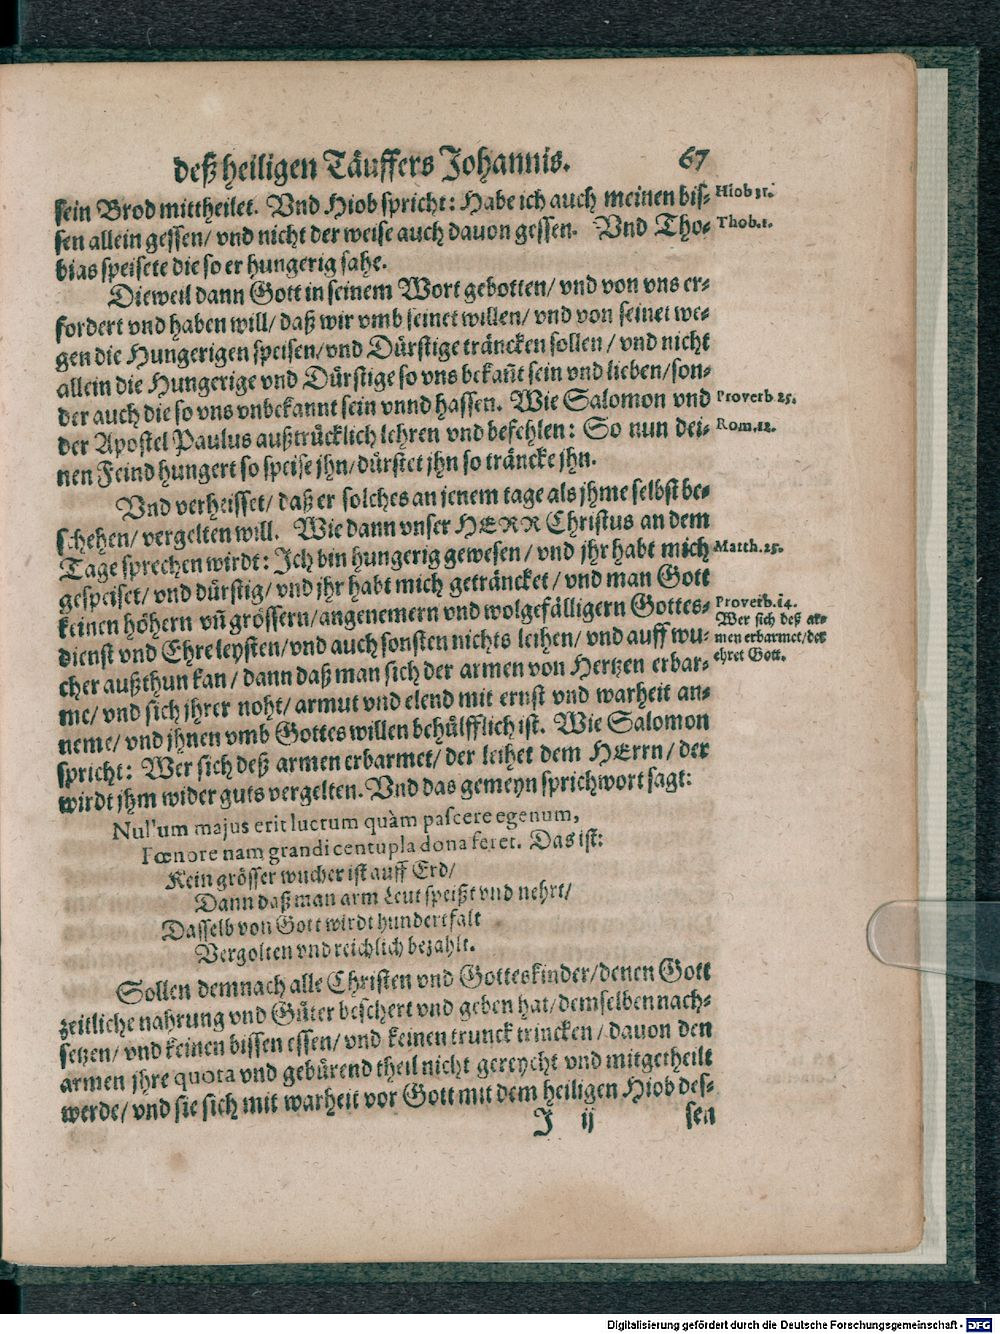 deß heiligen Täuffers Johannis. 67
sein Brod mittheilet. Vnd Hiob spricht: Habe ich auch meinen bis- Hiob 31.
sen allein gessen/ vnd nicht der weise auch dauon gessen. Vnd Tho- Thob.1.
bias speisete die so er hungerig sahe.
Dieweil dann Gott in seinem Wort gebotten/ vnd von vns er-
fordert vnd haben will/ daß wir vmb seinet willen/ vnd von seinet we-
gen die Hungerigen speisen/ vnd Dürstige träncken sollen/ vnd nicht
allein die Hungerige vnd Dürstige so vns bekañt sein vnd lieben/ son-
der auch die so vns vnbekannt sein vnnd hassen. Wie Salomon vnd Proverb 25.
der Apostel Paulus außtrücklich lehren vnd befehlen: So nun dei- Rom.12.
nen Feind hungert so speise jhn/ dürstet jhn so träncke jhn.
Vnd verheisset/ daß er solches an jenem tage als jhme selbst be-
schehen/ vergelten will. Wie dann vnser HERR Christus an dem
Tage sprechen wirdt: Ich bin hungerig gewesen/ vnd jhr habt mich Matth.25.
gespeiset/ vnd dürstig/ vnd jhr habt mich geträncket/ vnd man Gott
keinen höhern vñ grössern/ angenemern vnd wolgefälligern Gottes- Proverb.14.
dienst vnd Ehre leysten/ vnd auch sonsten nichts leihen/ vnd auff wu- Wer sich deß ar-
cher außthun kan/ dann daß man sich der armen von Hertzen erbar- men erbarmet/ der
me/ vnd sich jhrer noht/ armut vnd elend mit ernst vnd warheit an- ehret Gott.
neme/ vnd jhnen vmb Gottes willen behülfflich ist. Wie Salomon
spricht: Wer sich deß armen erbarmet/ der leihet dem HErrn/ der
wirdt jhm wider guts vergelten. Vnd das gemeyn sprichwort sagt:
Nullum majus erit lucrum quàm pascere egenum,
Fœnore nam grandi centupla dona feret. Das ist:
Kein grösser wucher ist auff Erd/
Dann daß man arm Leut speißt vnd nehrt/
Dasselb von Gott wirdt hundertfalt
Vergolten vnd reichlich bezahlt.
Sollen demnach alle Christen vnd Gotteskinder/ denen Gott
zeitliche nahrung vnd Güter beschert vnd geben hat/ demselben nach-
setzen/ vnd keinen bissen essen/ vnd keinen trunck trincken/ dauon den
armen jhre quota vnd gebürend theil nicht gereycht vnd mitgetheilt
werde/ vnd sie sich mit warheit vor Gott mit dem heiligen Hiob des-
J ij sen
Digitalisierung gefördert durch die Deutsche Forschungsgemeinschaft - DFG